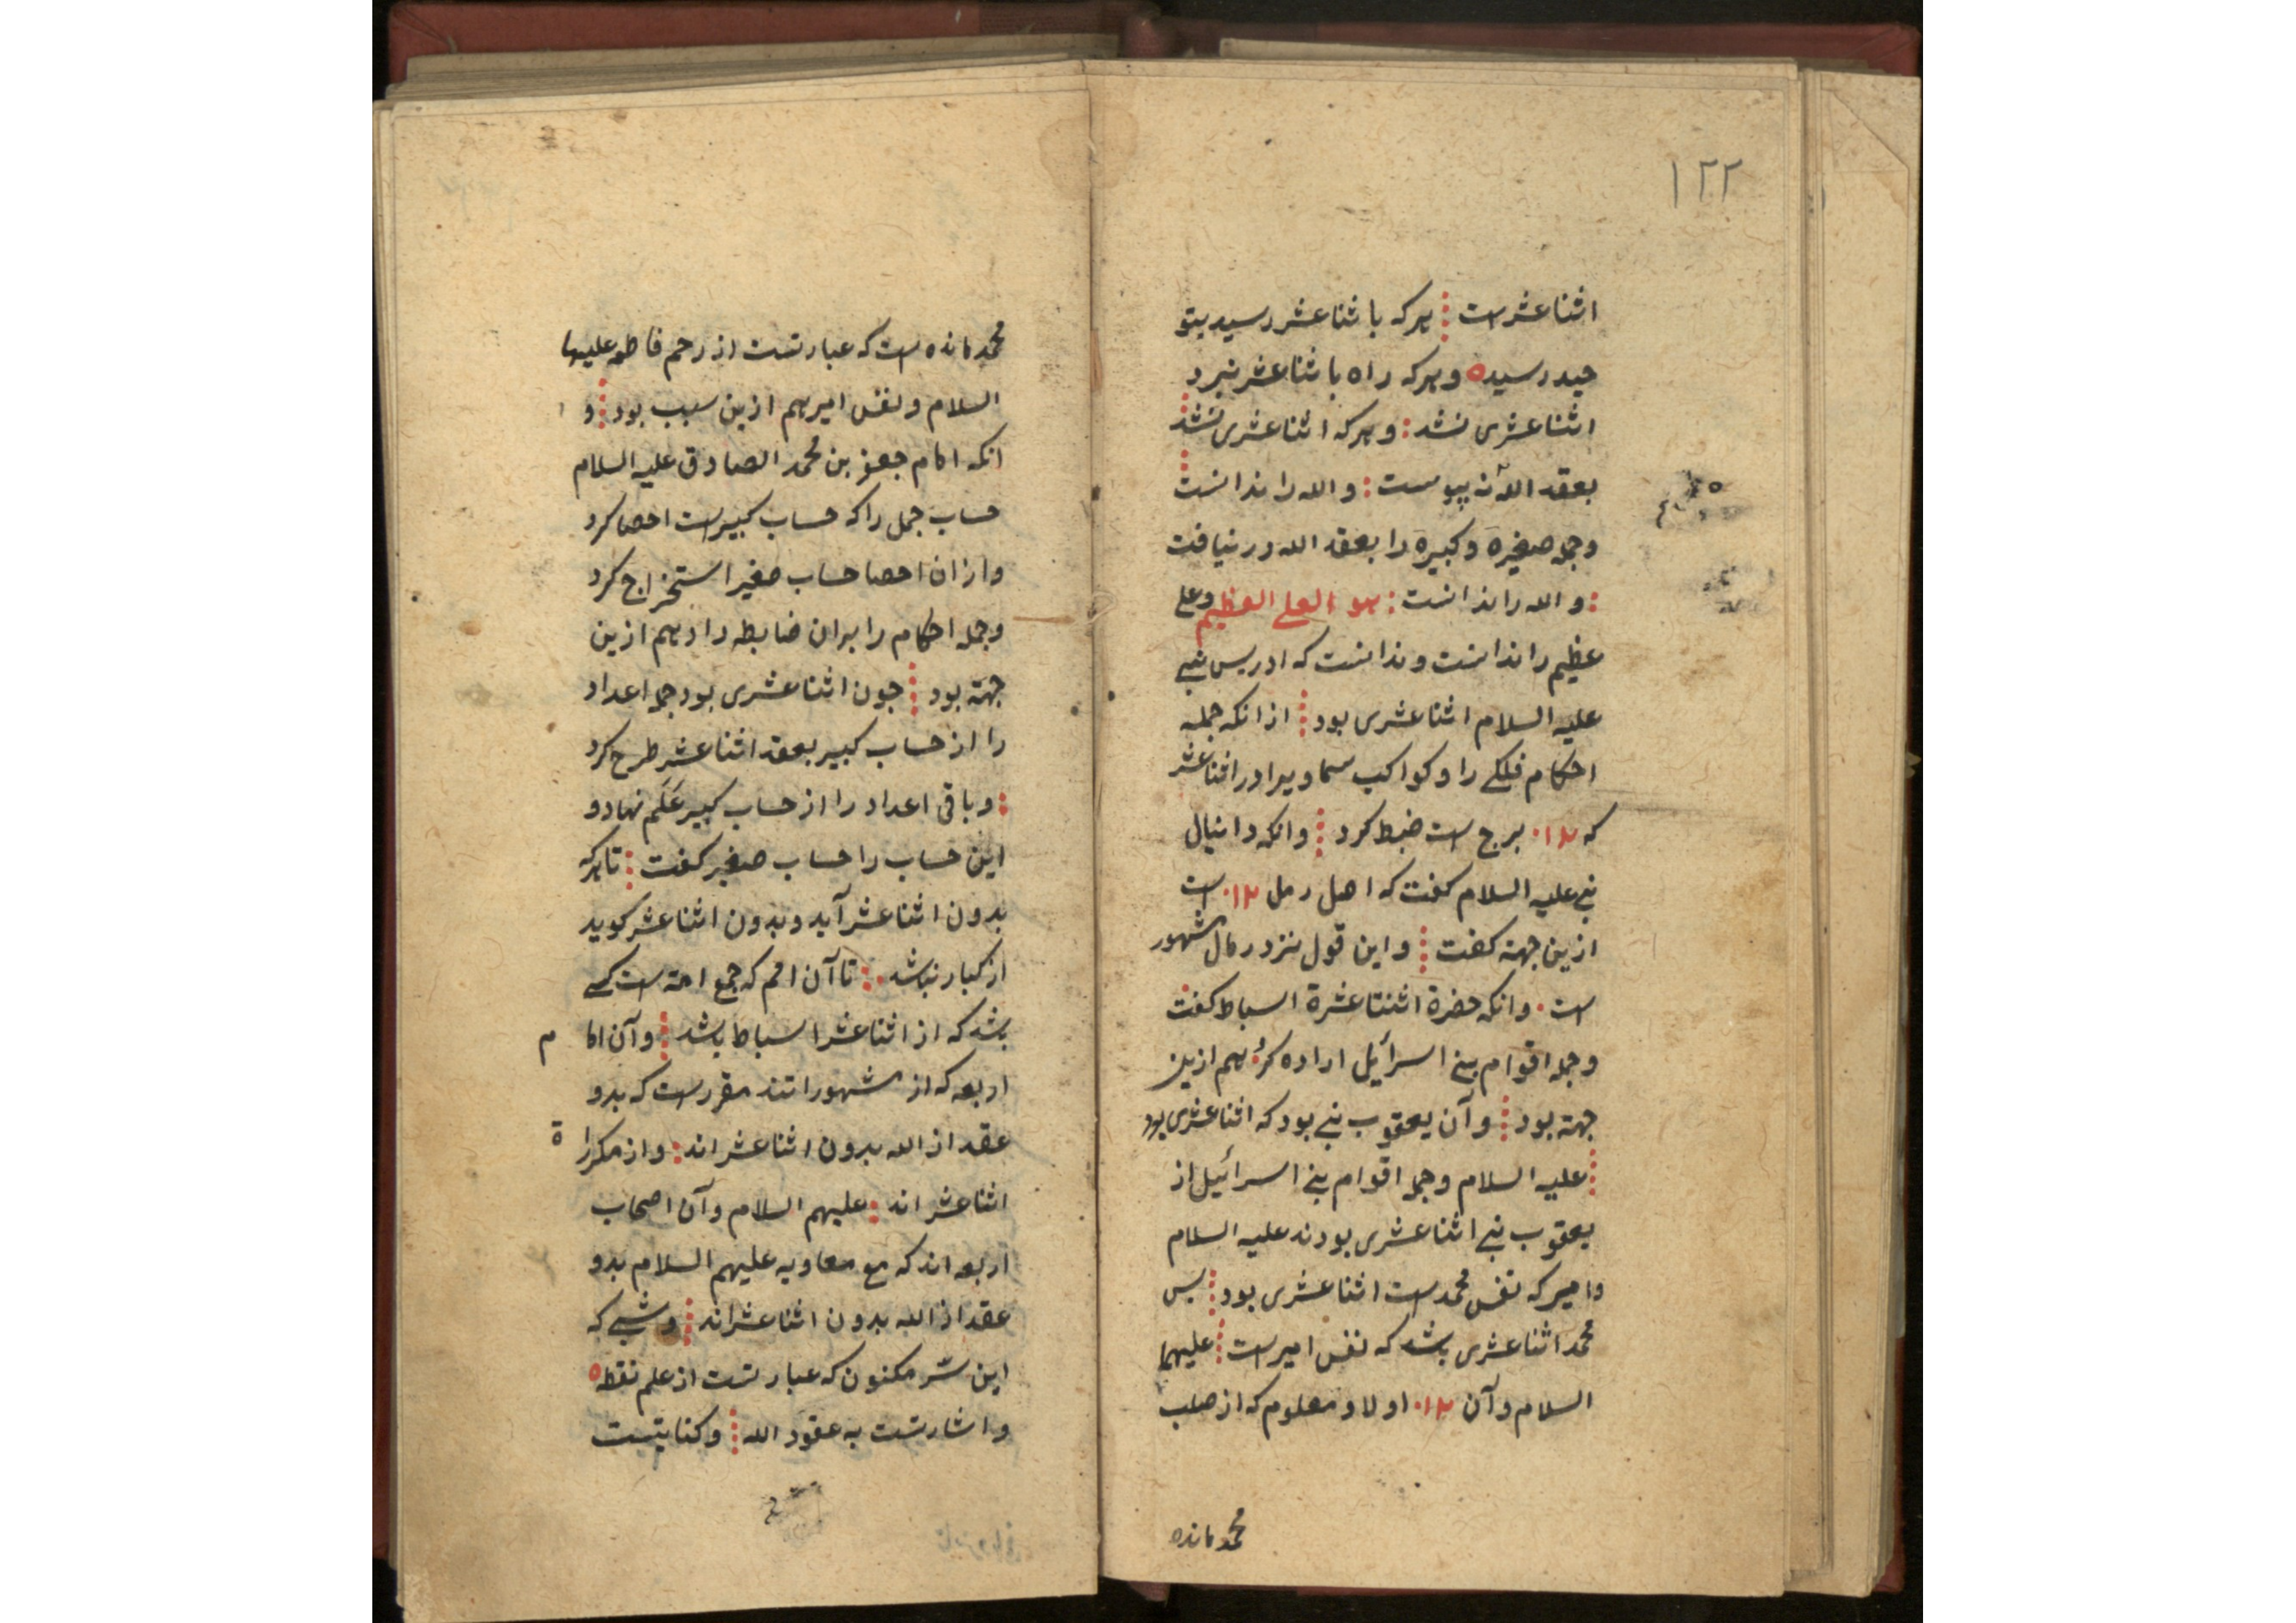 ١٢٢
اثنا عشر است هر که با ثنا عشر رسید بتو
حید رسیده و هر که راه با ثنا عشر نبرد
اثنا عشری نشد و هر که اثنا عشری نشد
بعقد الله نه پیوست و الله را ندانست
و جمله صغیره و کبیره را بعقد الله در نیافت
و الله را ندانست هو العلی العظیم و علی
عظیم را ندانست و ندانست که ادریس نبی
علیه السلام اثنا عشری بود از انکه جمله
احکام فلکی را و کواکب سماویرا در اثنا عشر
که ١٢ برج است ضبط کرد و انکه دانیال
نبی علیه السلام کفت که اهل رمل ١٢ است
ازین جهة کفت و این قول نزد رمال مشهور
است و انکه حضرة اثنتا عشرة اسباط کفت
و جمله اقوام بنی اسرائیل اراده کرد هم ازین
جهة بود و آن یعقوب نبی بود که اثنا عشری بود
علیه السلام و جمله اقوام بنی اسرائیل از
یعقوب نبی اثنا عشری بودند علیه السلام
و امیر که نفس محمد است اثنا عشری بود پس
محمد اثنا عشری باشد که نفس امیر است علیهما
السلام و آن ١٢ اولاد معلوم که از صلب
محمد مانده
محمد مانده است که عبارتست از رحم فاطمه علیها
السلام و نفس امیر هم ازین سبب بود و
انکه امام جعفر بن محمد الصادق علیه السلام
حساب جمل را که حساب کبیر است احصا کرد
و ازان احصا حساب صغیر استخراج کرد
و جمله احکام را بران ضابطه داد هم ازین
جهة بود جون اثنا عشری بود جمله اعداد
را از حساب کبیر بعقد اثنا عشر طرح کرد
و باقی اعداد را از حساب کبیر علم نهاد و
این حساب را حساب صغیر کفت تا هر که
بدون اثنا عشر آید و بدون اثنا عشر کوید
از کبار نباشد تا آن امم که جمع امة است کسی
باشد که از اثنا عشر اسباط باشد و آن اما م
اربعه که از مشهوراتند مقرر است که بدو
عقد از الله بدون اثنا عشر اند و از مکررا ة
اثنا عشر اند علیهم السلام و آن اصحاب
اربعه اند که مع معاویه علیهم السلام بدو
عقد از الله بدون اثنا عشر اند و شبی که
این سر مکنون که عبارتست از علم نقطه
و اشارتست به عقود الله و کنایتست